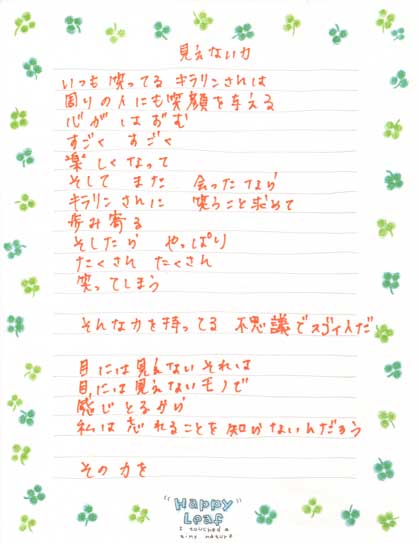 見えない力
いつも笑ってる キラリンさんは
周りの人にも笑顔を与える
心が はずむ
すごく すごく
楽しくなって
そして また 会ったなら
キラリンさんに 笑うこと求めて
歩み寄る
そしたら やっぱり
たくさん たくさん
笑ってしまう
そんな力を持ってる 不思議でスゴイ人だ
目には見えないそれは
目には見えないモノで
感じとるから
私は忘れることを知らないんだろう
その力を
"Happy
Leaf"
I touched a
tiny nature